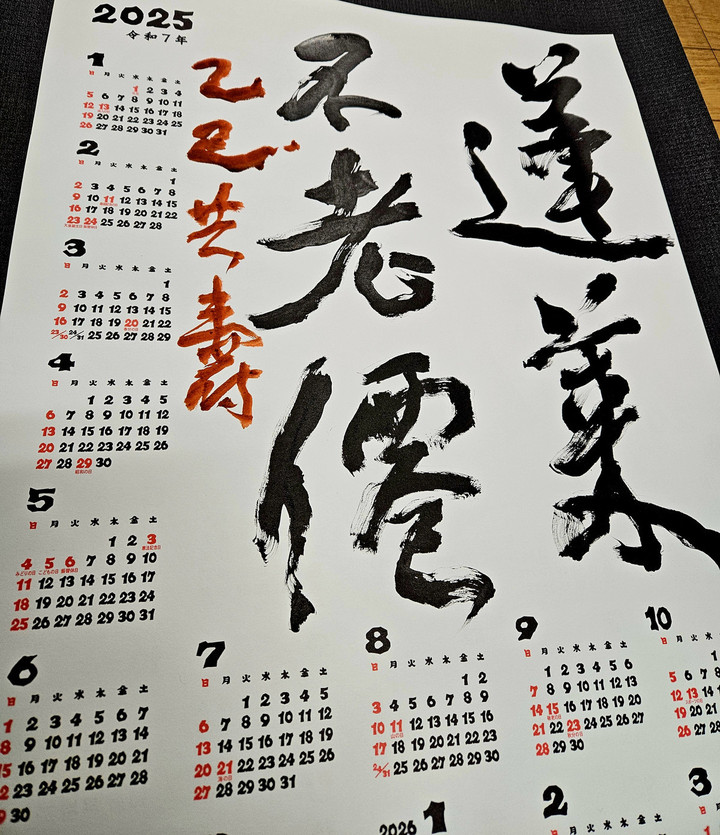 蓬萊
不老僊
乙巳共壽
2025
令和7年
1
日 月 火 水 木 金 土
1 2 3 4
5 6 7 8 9 10 11
12 13 14 15 16 17 18
19 20 21 22 23 24 25
26 27 28 29 30 31
2
日 月 火 水 木 金 土
1
2 3 4 5 6 7 8
9 10 11 12 13 14 15
16 17 18 19 20 21 22
23 24 25 26 27 28
3
日 月 火 水 木 金 土
1
2 3 4 5 6 7 8
9 10 11 12 13 14 15
16 17 18 19 20 21 22
23/30 24/31 25 26 27 28 29
4
日 月 火 水 木 金 土
1 2 3 4 5
6 7 8 9 10 11 12
13 14 15 16 17 18 19
20 21 22 23 24 25 26
27 28 29 30
昭和の日
5
日 月 火 水 木 金 土
1 2 3
憲法記念日
4 5 6 7 8 9 10
みどりの日 こどもの日 振替休日
11 12 13 14 15 16 17
18 19 20 21 22 23 24
25 26 27 28 29 30 31
6
日 月 火 水 木 金 土
1 2 3 4 5 6 7
8 9 10 11 12 13 14
15 16 17 18 19 20 21
22 23 24 25 26 27 28
29 30
7
日 月 火 水 木 金 土
1 2 3 4 5
6 7 8 9 10 11 12
13 14 15 16 17 18 19
20 21 22 23 24 25 26
海の日
27 28 29 30 31
8
日 月 火 水 木 金 土
1 2
3 4 5 6 7 8 9
10 11 12 13 14 15 16
山の日
17 18 19 20 21 22 23
24/31 25 26 27 28 29 30
9
日 月 火 水 木 金 土
1 2 3 4 5 6
7 8 9 10 11 12 13
14 15 16 17 18 19 20
敬老の日
21 22 23 24 25 26 27
秋分の日
28 29 30
10
日 月 火 水
1
5 6 7 8
12 13 14
スポーツの日
19 20 21
26 27
2026
1
2
日 月 火 水 木 金 土
3